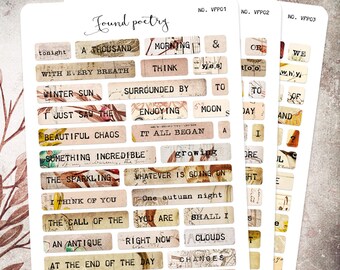 Found poetry
NO. VFP01
NO. VFP02
NO. VFP03
tonight A THOUSAND MORNING &
WITH EVERY BREATH THINK y,o,u
WINTER SUN SURROUNDED BY TO
I JUST SAW THE ENJOYING MOON
BEAUTIFUL CHAOS IT ALL BEGAN A
SOMETHING INCREDIBLE growing
THE SPARKLING WHATEVER IS GOING ON
I THINK OF YOU One autumn night
THE CALL OF THE YOU ARE SHALL I
AN ANTIQUE RIGHT NOW CLOUDS
AT THE END OF THE DAY CHANGES
OR OF
WE